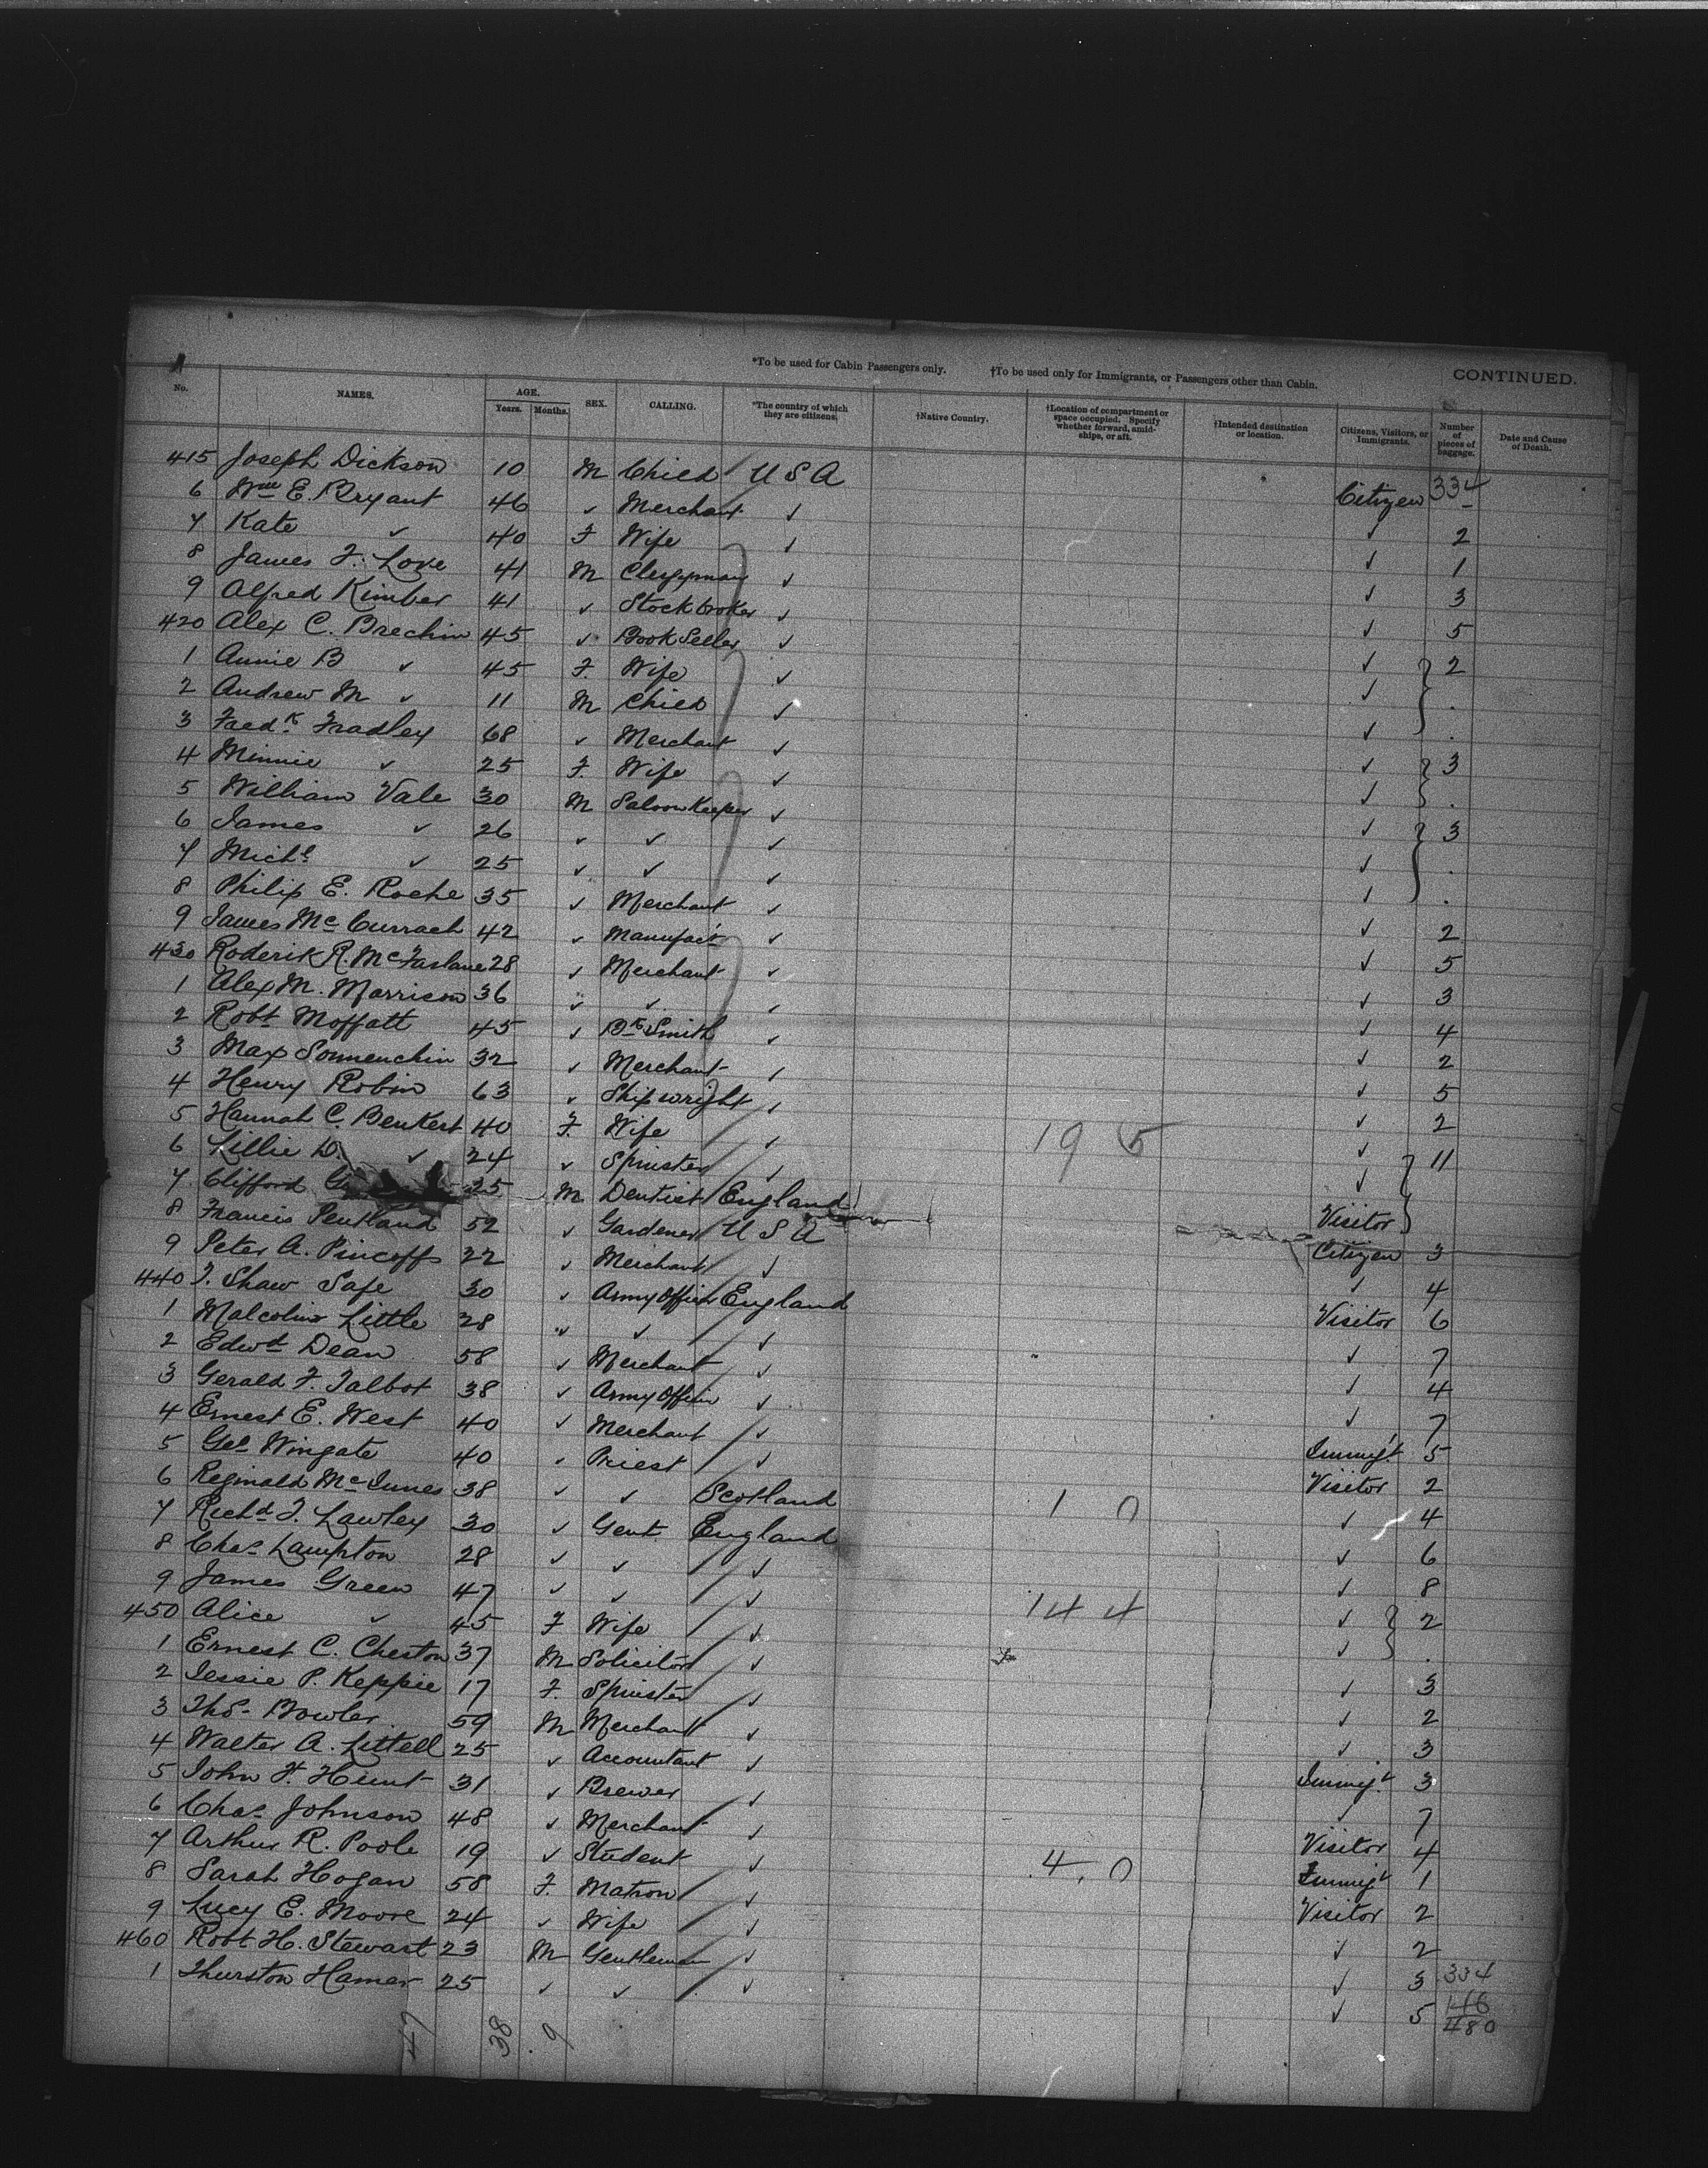 *To be used for Cabin Passengers only. †To be used only for Immigrants, or Passengers other than Cabin. CONTINUED.
No. NAMES. AGE. Years. Months. SEX. CALLING. *The country of which they are citizens. †Native Country. †Location of compartment or space occupied. Specify whether forward, amidships, or aft. †Intended destination or location. Citizens, Visitors, or Immigrants. Number of pieces of baggage. Date and Cause of Death.
334
415 Joseph Dickson 10 M Child U S A Citizen -
6 Wm E. Bryant 46 ✓ Merchant ✓ ✓ 2
7 Kate ✓ 40 F Wife ✓ ✓ 1
8 James F. Love 41 M Clergyman ✓ ✓ 3
9 Alfred Kimber 41 ✓ Stockbroker ✓ ✓ 5
420 Alex C. Brechin 45 ✓ Book Seller ✓ ✓ 2
1 Annie B ✓ 45 F. Wife ✓ ✓ .
2 Andrew M ✓ 11 M Child ✓ ✓ .
3 Fredk. Fradley 68 ✓ Merchant ✓ ✓ 3
4 Minnie ✓ 25 F. Wife ✓ ✓ .
5 William Vale 30 M Saloon Keeper ✓ ✓ 3
6 James ✓ 26 ✓ ✓ ✓ ✓ .
7 Michl ✓ 25 ✓ ✓ ✓ ✓ .
8 Philip E. Roche 35 ✓ Merchant ✓ ✓ 2
9 James McCurrach 42 ✓ Manufact ✓ ✓ 5
430 Roderik R. McFarlane 28 ✓ Merchant ✓ ✓ 3
1 Alex M. Morrison 36 ✓ ✓ ✓ ✓ 4
2 Robt Moffatt 45 ✓ Bk Smith ✓ ✓ 2
3 Max Sonnenchin 32 ✓ Merchant ✓ ✓ 5
4 Henry Robin 63 ✓ Shipwright ✓ ✓ 2
5 Hannah C. Benkert 40 F. Wife ✓ 19 5 ✓ 11
6 Lillie D. ✓ 24 ✓ Spinster ✓ ✓
7 Clifford 25 M Dentist England Visitor
8 Francis Pentland 52 ✓ Gardener U S A Citizen 3
9 Peter A. Pincoffs 22 ✓ Merchant ✓ ✓ 4
440 T. Shaw Safe 30 ✓ Army Officer England Visitor 6
1 Malcolm Little 28 ✓ ✓ ✓ ✓ 7
2 Edwd Dean 58 ✓ Merchant ✓ ✓ 4
3 Gerald F. Talbot 38 ✓ Army Officer ✓ ✓ 7
4 Ernest E. West 40 ✓ Merchant ✓ Immigt. 5
5 Geo Wingate 40 ✓ Priest ✓ Visitor 2
6 Reginald McInnes 38 ✓ ✓ Scotland 1 0 ✓ 4
7 Richd T. Lawley 30 ✓ Gent England ✓ 6
8 Chas. Lampton 28 ✓ ✓ ✓ ✓ 8
9 James Green 47 ✓ ✓ ✓ 14 4 ✓ 2
450 Alice ✓ 45 F Wife ✓ ✓ .
1 Ernest C. Cheston 37 M Solicitor ✓ ✓ 3
2 Jessie P. Keppie 17 F. Spinster ✓ ✓ 2
3 Thos. Bowler 59 M Merchant ✓ ✓ 3
4 Walter A. Littell 25 ✓ Accountant ✓ Immigt 3
5 John H. Hunt 31 ✓ Brewer ✓ ✓ 7
6 Chas. Johnson 48 ✓ Merchant ✓ Visitor 4
7 Arthur R. Poole 19 ✓ Student ✓ 4 0 Immigt 1
8 Sarah Hogan 58 F. Matron ✓ Visitor 2
9 Lucy E. Moore 24 ✓ Wife ✓ ✓ 2
460 Robt H. Stewart 23 M Gentleman ✓ ✓ 3
1 Thurston Hamer 25 ✓ ✓ ✓ ✓ 5
334
146
480
47 38 9